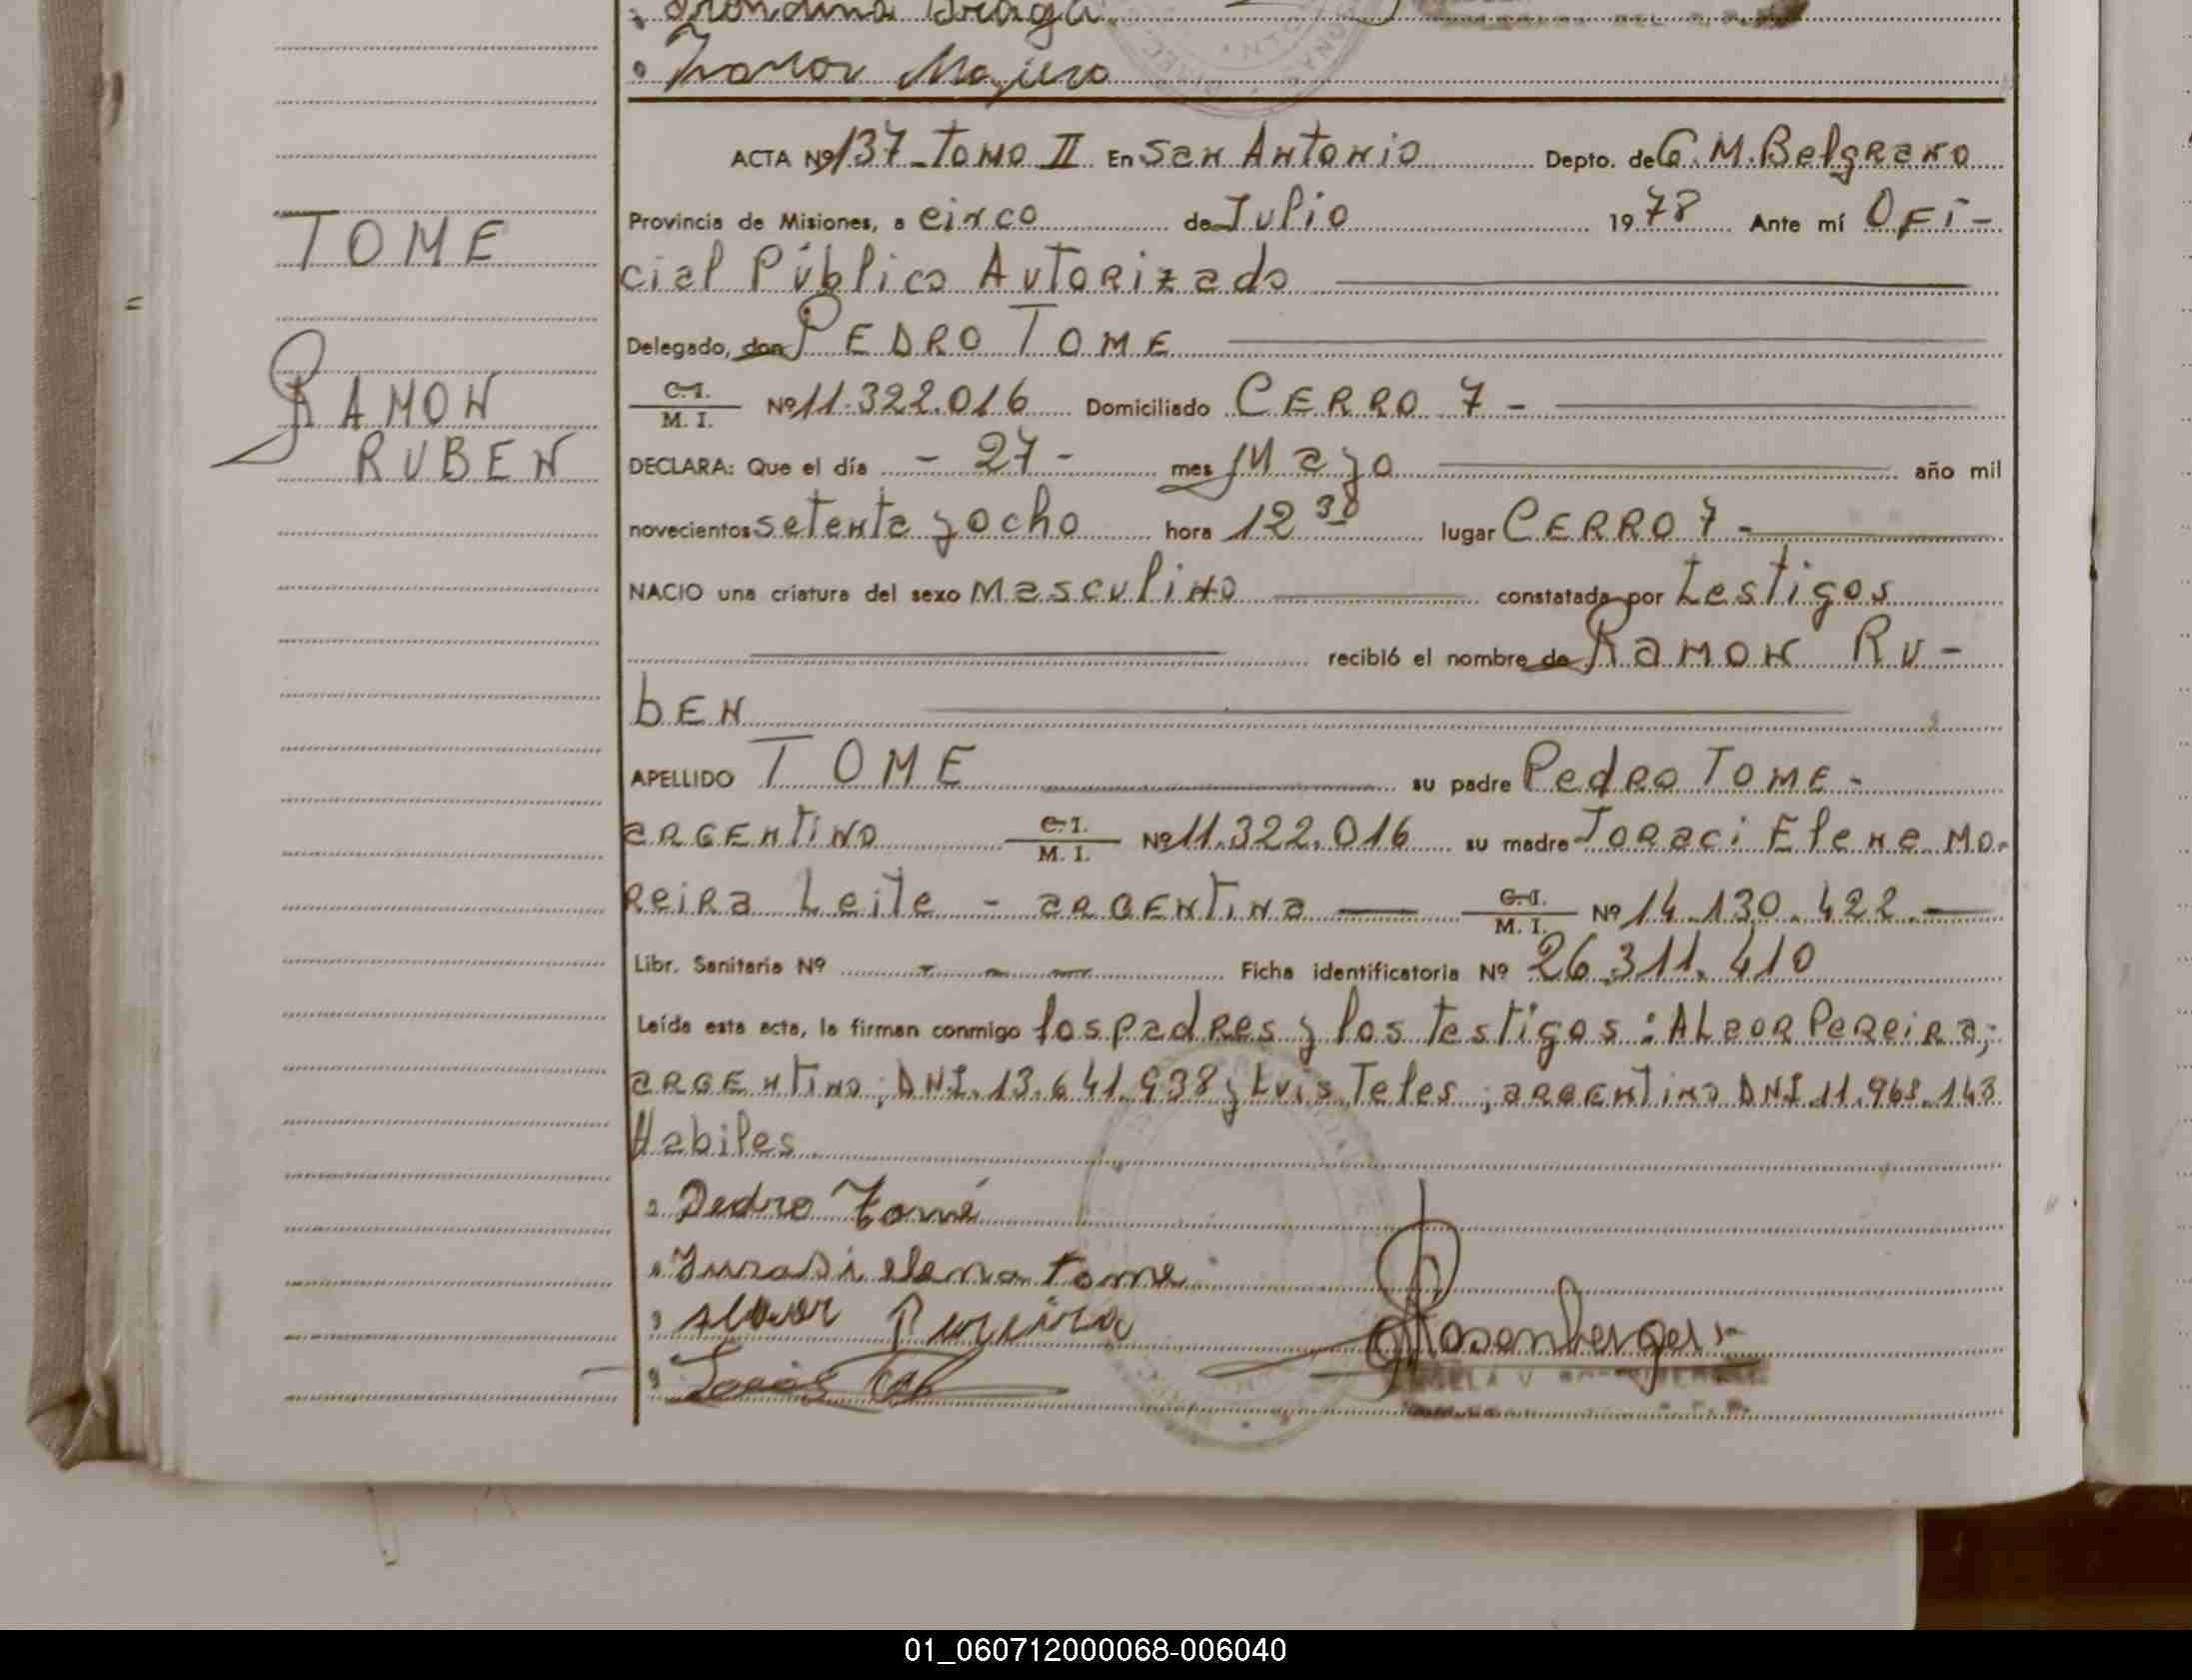 Ramon Majero
ACTA Nº 137 - Tomo II En San Antonio Depto. de G. M. Belgrano
Provincia de Misiones, a cinco de Julio 1978 Ante mí Ofi-
cial Público Autorizado
TOME
Delegado, don PEDRO TOME
RAMON
C.I. / M. I. Nº 11.322.016 Domiciliado CERRO 7 -
RUBEN
DECLARA: Que el día - 27 - mes Mayo año mil
novecientos setenta y ocho hora 12 30 lugar CERRO 7 -
NACIO una criatura del sexo Masculino constatada por testigos
recibió el nombre de Ramon Ru-
bEN
APELLIDO TOME su padre Pedro TOME -
argentino C.I. / M. I. Nº 11.322.016 su madre Joraci Elena Mo-
reira Leite - argentina C.I. / M. I. Nº 14.130.422.
Libr. Sanitaria Nº - - - Ficha identificatoria Nº 26.311.410
Leída esta acta, la firman conmigo los padres y los testigos: ALaor Pereira;
argentino; DNI. 13.641.938 y Luis Teles; argentino DNI 11.968.143
Habiles
Pedro Tomé
Jurasi elena tome
Alaor Pereira
Rosenberger
01_060712000068-006040